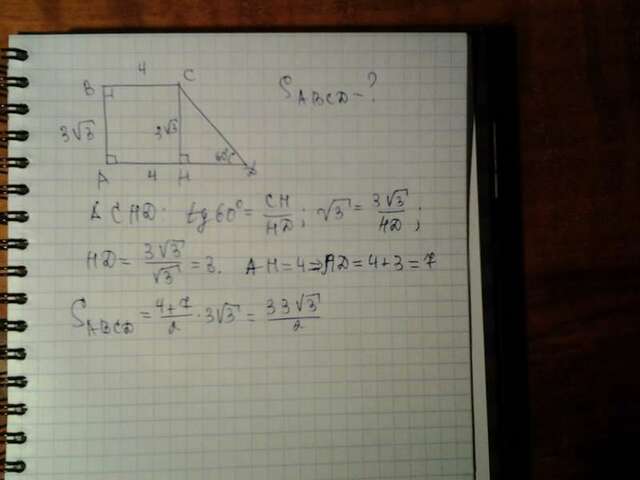 4
B C S_ABCD - ?
3√3 3√3 60°
A 4 H D
Δ CHD: tg 60° = CH/HD; √3 = 3√3/HD;
HD = 3√3/√3 = 3. AH = 4 ⇒ AD = 4 + 3 = 7
S_ABCD = (4+7)/2 · 3√3 = 33√3/2